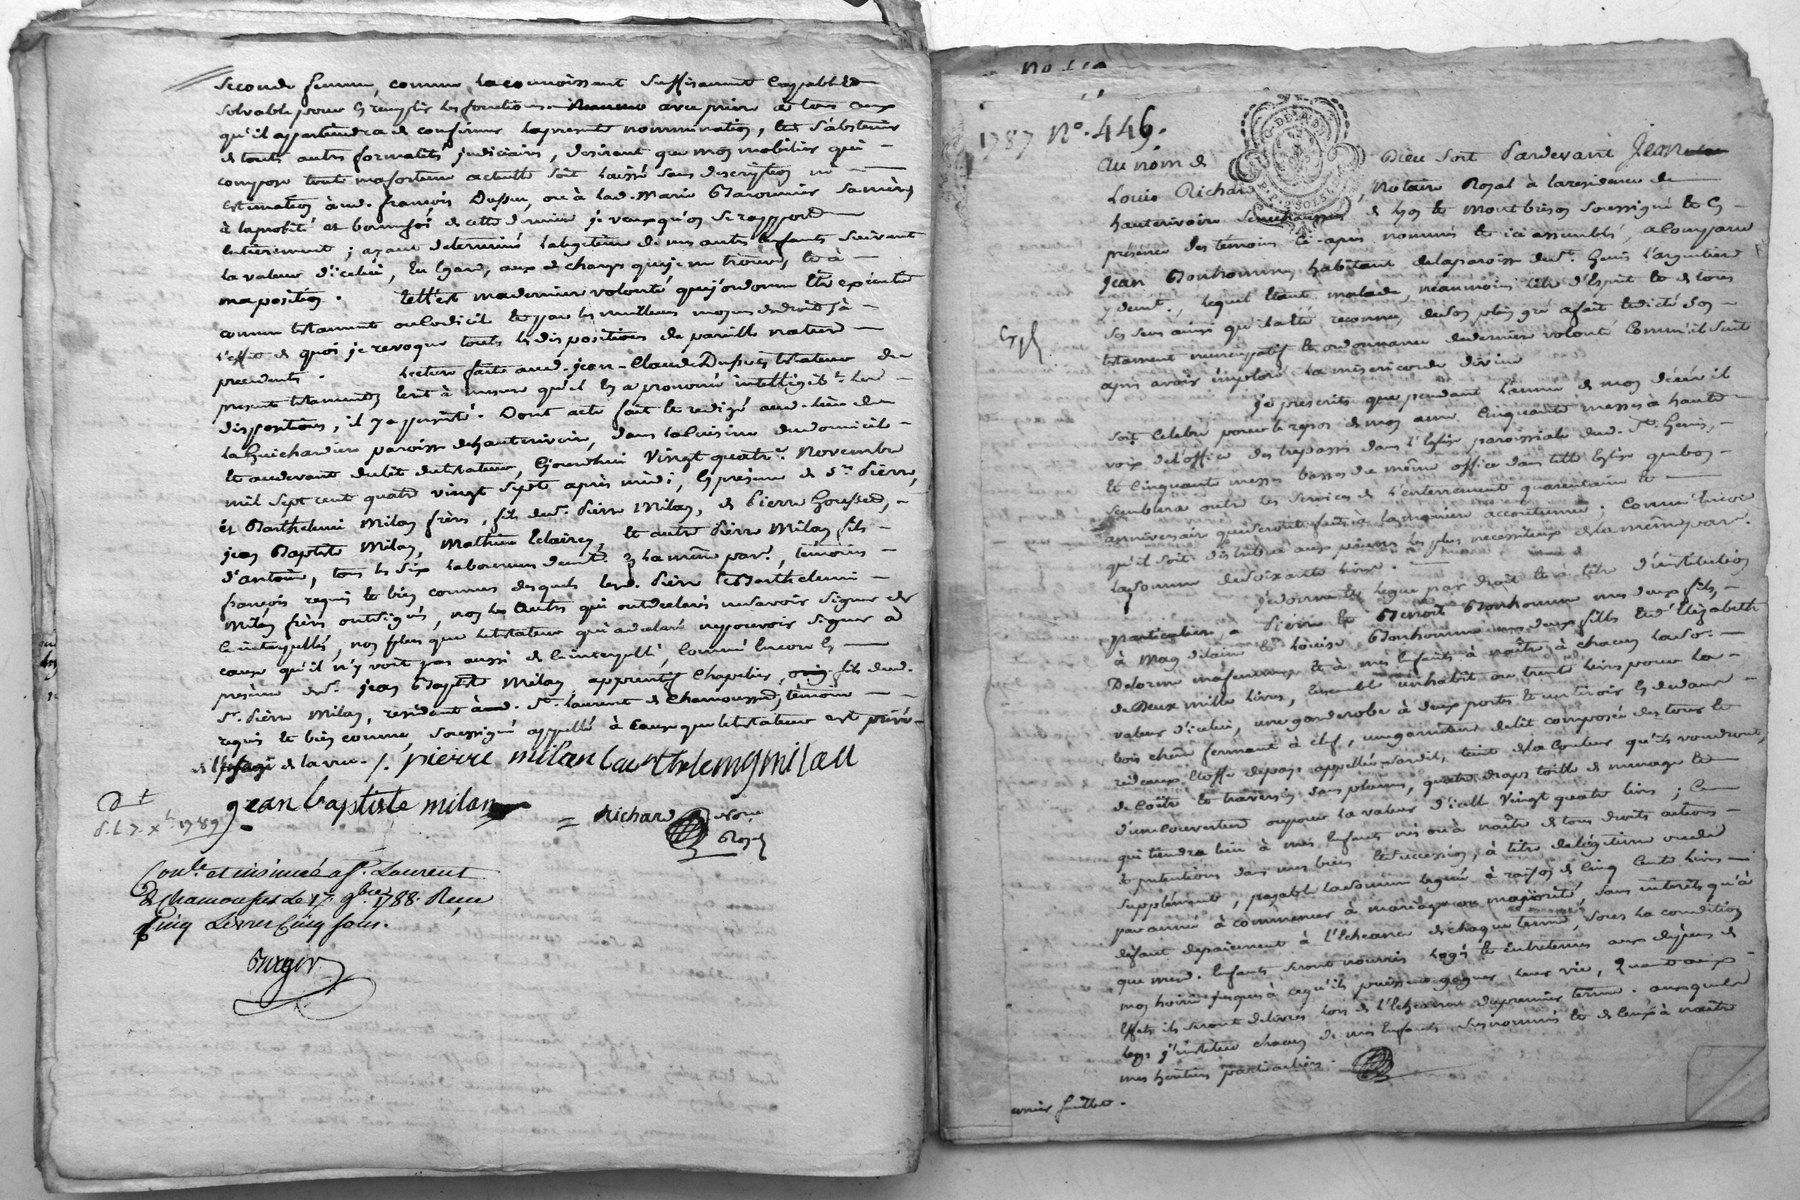 seconde femme, comme la connoissant suffisament cappable &
solvable pour en remplir les fonctions avec prière à tous ceux
qu'il appartiendra de confirmer la presente nommination, & de s'abstenir
de toutes autres formalités judiciaires, desirant que mon mobilier qui
compose toute ma fortune actuelle soit laissé sans description ni
estimation aud. françois Dupuy, ou à lad. Marie sa mère
à la probité et bonne foi de cette derniere je veux qu'on se rapporte
entièrement ; ayant determiné la legitime de mes autres enfants suivant
la valeur d'icelui, eu egard, aux charges que je me trouve, & à
ma position. telle est ma derniere volonté que j'ordonne être exécutée
comme testament ou codicil & par les meilleurs moyens de droit, à
l'effet de quoi je revoque toutes les dispositions de pareille nature
precedentes. Lecture faite aud. jean-Claude Dupuy testateur du
present testament écrit à mesure qu'il en a prononcé intelligibt. les
dispositions, il y a persisté. Dont acte fait & redigé aud. lieu de
la Guichardiere paroisse de hauterivoire, dans la cuisine du domicile
& au devant du lit du testateur, cejourdhui vingt quatre. Novembre
mil sept cent quatre vingt sept après midi, en presence de sr. Pierre,
et Barthelemi Milan frères, fils de sr. Pierre Milan, de Pierre Goussed,
jean Baptiste Milan, Mathieu Leclairey, & autre Pierre Milan fils
d'antoine, tous les six laboureurs demts. en la même par., témoins
françois requis & bien connus desquels lesd. Pierre & Barthelemi
Milan frères ont signés, non les autres qui ont declarés ne savoir signer de
ce interpellés, non plus que le testateur qui a declaré ne pouvoir signer à
cause qu'il n'y voit pas aussi de ce interpellé, comme encore en
presence de sr. jean Baptiste Milan, apprentif chapelier, fils dud.
sr. Pierre Milan, residant à St. Laurent de Chamousset, témoin
requis & bien connu, soussigné appellé à cause que le testateur est privé
de l'usage de la vue. /. pierre milan barthelemy milan
jean baptiste milan
Richard Nore
Royal
1789
Conlé et insinué a St. Laurent
de Chamousset Le 17. 9bre 1788. Reçu
Cinq Livres Cinq sols.
Burger
1787 No. 446.
Au nom de Dieu soit Pardevant Jean
Louis Richard, Notaire Royal à la residence de
hauterivoire senechaussée de Lyon & Montbrison soussigné & en
presence des témoins ci-après nommés & ici assemblés, a comparu
Jean Bonhomme, habitant de la paroisse de St. Genis l'argentiere
y demt., lequel étant malade, neanmoins libre d'Esprit & de tous
ses sens ainsi qu'il a été reconnu, de son plein gré a fait & dicté son
testament nuncupatif & ordonnance de derniere volonté comm'il suit
après avoir imploré la misericorde divine
je prescrits que pendant l'année de mon décès il
soit celebré pour le repos de mon ame cinquante messes à haute
voix de l'office des trepassés dans l'eglise paroissiale dud. St. Genis,
& cinquante messes basses du même office dans telle eglise que bon
semblera outre les services de l'enterrement quarantaine &
anniversaire qui seront faits à la maniere accoutumée. Comm'encore
qu'il soit distribué aux pauvres les plus necessiteux de la même par.
la somme de soixante livres.
je donne & legue par droit & à titre d'institution
particuliere, à Pierre & Benoit Bonhomme mes deux fils,
à Magdelaine & Louise Bonhomme mes deux filles & d'Elizabeth
Delorme ma femme & à mes enfants à naître à chacun la so.
de Deux mille livres, ensemble un habit ou trente livres pour la
valeur d'icelui, une garderobe à deux portes & un tiroir en dedans
bois chene fermant à clef, une garniture de lit composée des tours &
rideaux étoffe du pays appellée Cordit, teint de la couleur qu'ils voudront,
de coître & traversin sans plumes, quatre draps toille de menage &
d'une couverture ou pour la valeur d'icelle vingt quatre livres ; Ce
qui tiendra lieu à mes enfants nés ou à naître de tous droits actions
& pretentions dans mes biens & succession, à titre de legitime ou de
supplément, payable la somme leguée à raison de cinq cents livres
par année à commencer à mariage ou majorité, sans interêts qu'à
défaut de paiement à l'echéance de chaque terme, sous la condition
que mesd. enfants seront nourris logés & entretenus aux depens de
mon hoirie jusques à ce qu'ils puissent gagner leur vie, Quant aux
effets ils seront delivrés lors de l'echeance du premier terme. auxquels
legs j'institue chacun de mes enfants susnommés & de ceux à naître
mes heritiers particuliers.